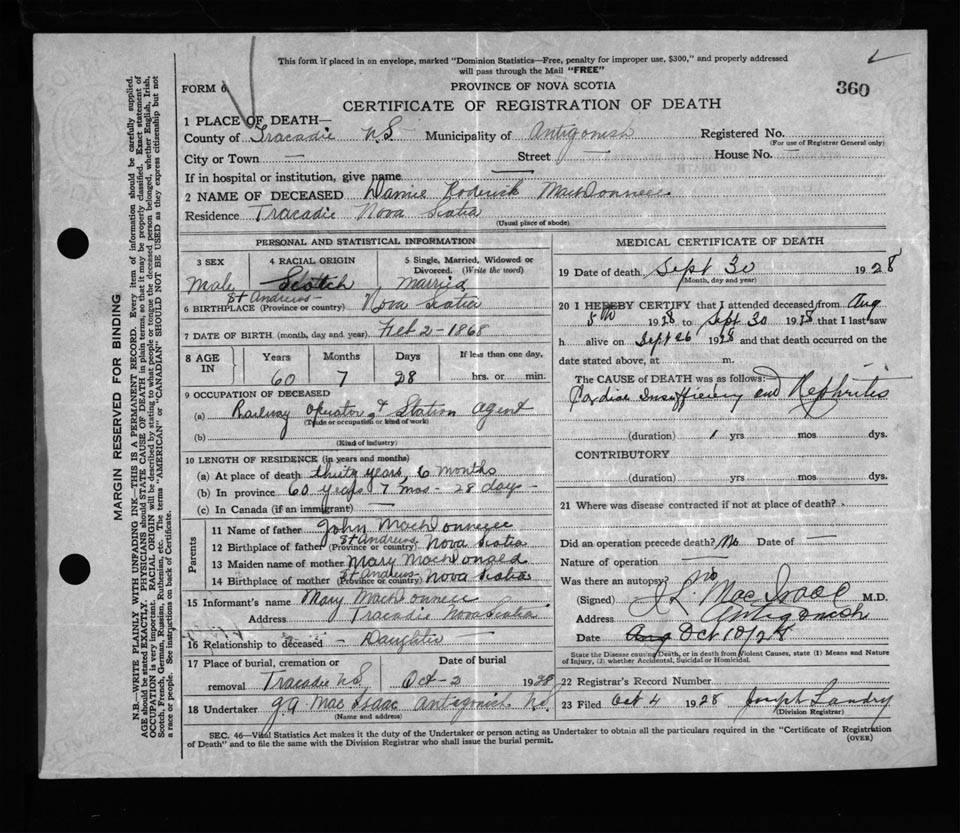 This form if placed in an envelope, marked "Dominion Statistics—Free, penalty for improper use, $300," and properly addressed
will pass through the Mail "FREE"
FORM 6
PROVINCE OF NOVA SCOTIA
360
CERTIFICATE OF REGISTRATION OF DEATH
1 PLACE OF DEATH—
County of Tracadie N.S. Municipality of Antigonish Registered No.
(For use of Registrar General only)
City or Town — Street — House No. —
If in hospital or institution, give name —
2 NAME OF DECEASED Daniel Roderick MacDonnell
Residence Tracadie Nova Scotia
(Usual place of abode)
PERSONAL AND STATISTICAL INFORMATION
3 SEX 4 RACIAL ORIGIN 5 Single, Married, Widowed or
Divorced. (Write the word)
Male Scotch Married
St Andrews
6 BIRTHPLACE (Province or country) Nova Scotia
7 DATE OF BIRTH (month, day and year) Feb 2 - 1868
8 AGE IN Years Months Days If less than one day,
60 7 28 hrs. or min.
9 OCCUPATION OF DECEASED
(a) Railway operator & Station agent
(Trade or occupation or kind of work)
(b)
(Kind of industry)
10 LENGTH OF RESIDENCE (in years and months)
(a) At place of death thirty years, 6 months
(b) In province 60 years 7 mos - 28 days -
(c) In Canada (if an immigrant) —
Parents
11 Name of father John MacDonnell
St Andrews
12 Birthplace of father (Province or country) Nova Scotia
13 Maiden name of mother Mary MacDonald
St Andrews
14 Birthplace of mother (Province or country) Nova Scotia
15 Informant's name Mary MacDonnell
Address Tracadie Nova Scotia
16 Relationship to deceased - Daughter -
17 Place of burial, cremation or Date of burial
removal Tracadie N.S. Oct - 2 1928
18 Undertaker MacIsaac Antigonish N.S.
(Name and address)
MEDICAL CERTIFICATE OF DEATH
19 Date of death Sept 30 1928
(Month, day and year)
20 I HEREBY CERTIFY that I attended deceased from Aug
5th 1928 to Sept 30 1928 that I last saw
h alive on Sept 26 1928 and that death occurred on the
date stated above, at m.
The CAUSE OF DEATH was as follows:
Cardiac Insufficiency and Nephritis
(duration) 1 yrs mos dys.
CONTRIBUTORY
(duration) yrs mos dys.
21 Where was disease contracted if not at place of death?
Did an operation precede death? No Date of —
Nature of operation —
Was there an autopsy? No
(Signed) MacIsaac M.D.
Address Antigonish
Date Aug Oct 10/28
State the Disease causing Death, or in death from Violent Causes, state (1) Means and Nature
of Injury, (2) whether Accidental, Suicidal or Homicidal.
22 Registrar's Record Number
23 Filed Oct 4 1928 Joseph Landry
(Division Registrar)
SEC. 46—Vital Statistics Act makes it the duty of the Undertaker or person acting as Undertaker to obtain all the particulars required in the "Certificate of Registration
of Death" and to file the same with the Division Registrar who shall issue the burial permit.
(OVER)
MARGIN RESERVED FOR BINDING
N.B.—WRITE PLAINLY WITH UNFADING INK—THIS IS A PERMANENT RECORD. Every item of information should be carefully supplied.
AGE should be stated EXACTLY. PHYSICIANS should STATE CAUSE OF DEATH in plain terms, so that it may be properly classified. Exact statement of
OCCUPATION is very important. RACIAL ORIGIN will be described by stating to what people or tongue the deceased person belonged, whether English, Irish,
Scotch, French, German, Russian, Ruthenian, etc. The terms "AMERICAN" or "CANADIAN" SHOULD NOT BE USED as they express citizenship but not
a race or people. See instructions on back of Certificate.